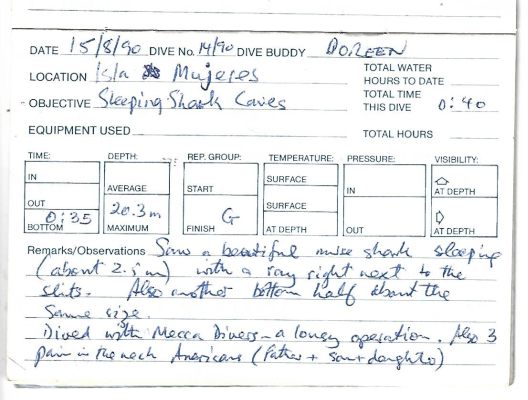 DATE 15/8/90 DIVE No. 14/90 DIVE BUDDY DOREEN
LOCATION Isla Mujeres
TOTAL WATER
HOURS TO DATE
OBJECTIVE Sleeping Shark Caves
TOTAL TIME
THIS DIVE 0:40
EQUIPMENT USED
TOTAL HOURS
TIME: DEPTH: REP. GROUP: TEMPERATURE: PRESSURE: VISIBILITY:
IN
AVERAGE
START
SURFACE
SURFACE
IN
AT DEPTH
OUT
0:35
BOTTOM
20.3m
MAXIMUM
G
FINISH
AT DEPTH
OUT
AT DEPTH
Remarks/Observations Saw a beautiful nurse shark sleeping
(about 2.5m) with a ray right next to the
slits. Also another bottom half about the
same size.
Dived with Mecca Divers - a lousy operation. Also 3
pain in the neck Americans (Father + son + daughter)